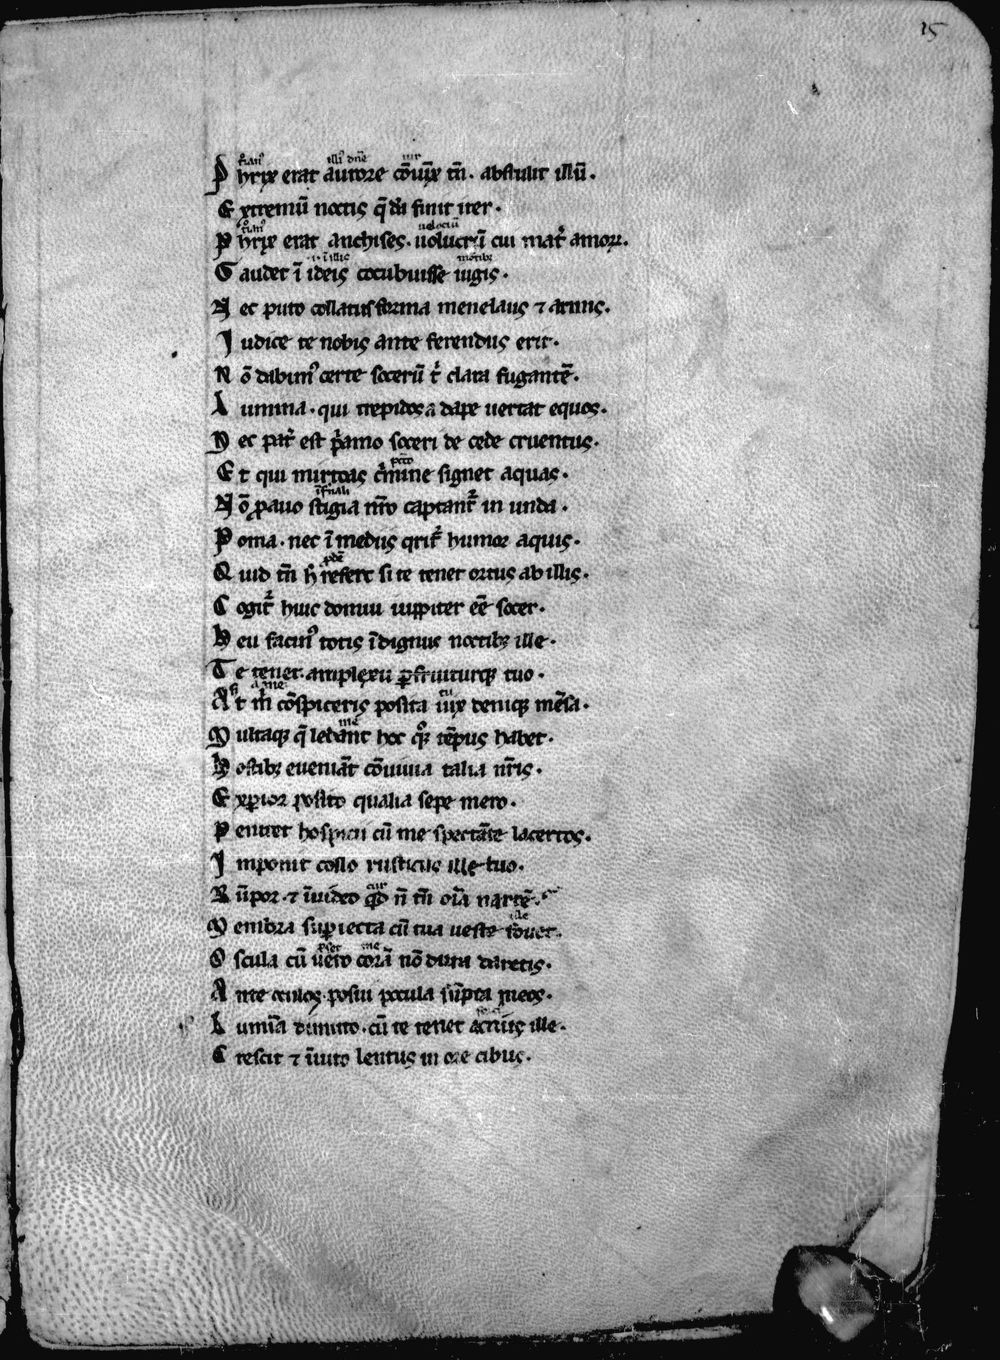 15
Phrix erat aurore cōiūx tn̄. abstulit illū.
Extremū noctis q̄ dō finit iter.
Phrix erat anchises. uolucrū cui mat̉ amorꝝ.
Gaudet ī ideis cōcubuisse iugis.
Nec puto collatus forma menelaus ⁊ annis.
Iudice te nobis ante ferendus erit.
Nō dabimꝰ certe socerū t̉ clara fugantē.
Lumina. qui trepidos a dape uertat equos.
Nec pat̉ est p̉amo soceri de cede cruentus.
Et qui mirtoas c̉mine signet aquas.
Nō ꝓauo stigia nr̄o captant̉ in unda.
Poma. nec ī mediis qrit̉ humor aquis.
Quid tn̄ h̄ refert si te tenet ortus ab illis.
Cogit̉ huic domui iuppiter eē̄ socer.
Heu facinꝰ totis īdignus noctibꝫ ille.
Te tenet. amplexu ꝑfruiturqꝫ tuo.
At m̄ cōspiceris posita uix deniqꝫ mēsa.
Multaqꝫ q̄ ledant hoc qͦꝫ tēpus habet.
Hostibꝫ eueniāt cōuiuia talia nr̄is.
Exꝑior posito qualia sepe mero.
Penitet hospicii cū me spectāte lacertos.
Imponit collo rusticus ille tuo.
Rūpor. ⁊ īuideo qͩ n̄ tn̄ oīa narrē.
Membra suꝑiecta cū tua ueste fouet.
Oscula cū uero corā nō dura daretis.
Ante oculos. posui pocula sūpta meos.
Lumīa dimitto. cū te tenet arctius ille.
Crescit ⁊ īuito lentus in ore cibus.